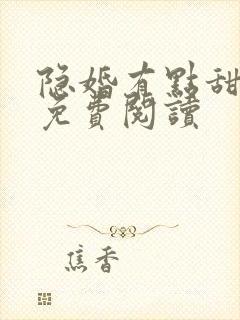 隐婚有點甜
免費閱讀
焦香